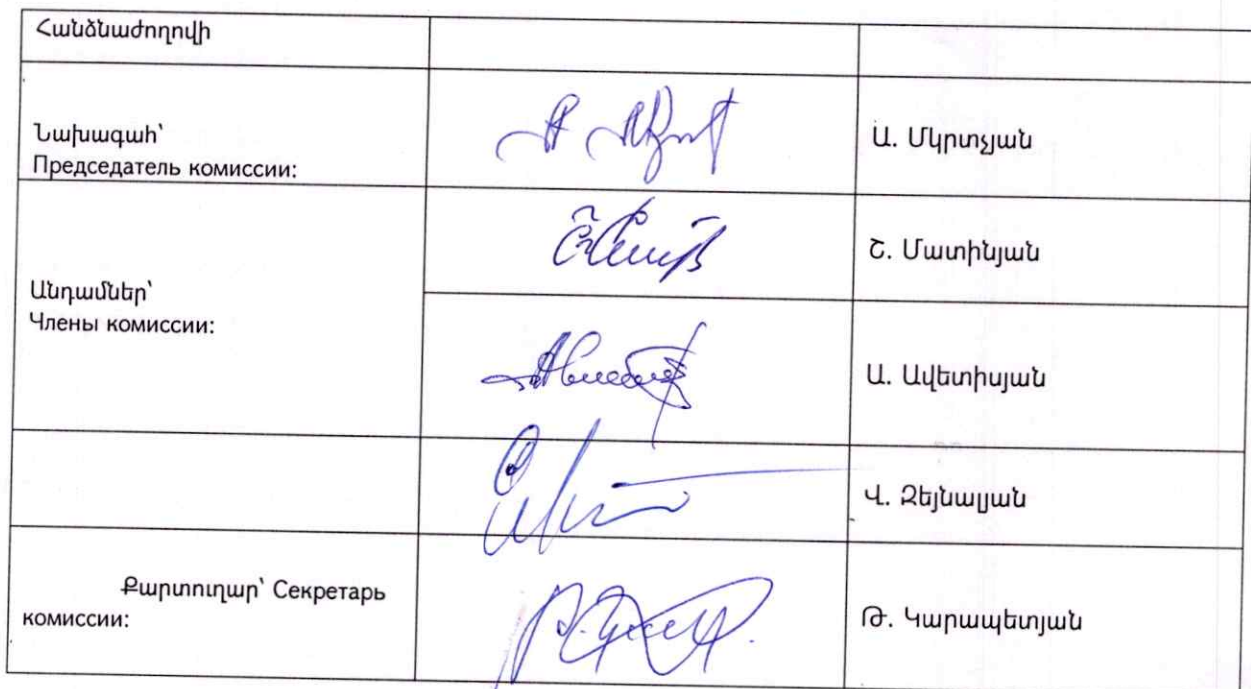 Հանձնաժողովի
Նախագահ՝
Председатель комиссии:
Ա. Մկրտչյան
Շ. Մատինյան
Անդամներ՝
Члены комиссии:
Ա. Ավետիսյան
Վ. Զեյնալյան
Քարտուղար՝ Секретарь
комиссии:
Թ. Կարապետյան